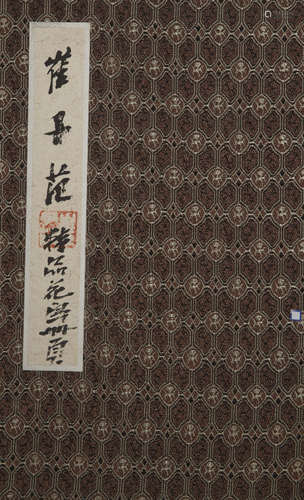 崔子范精品花鸟册頁